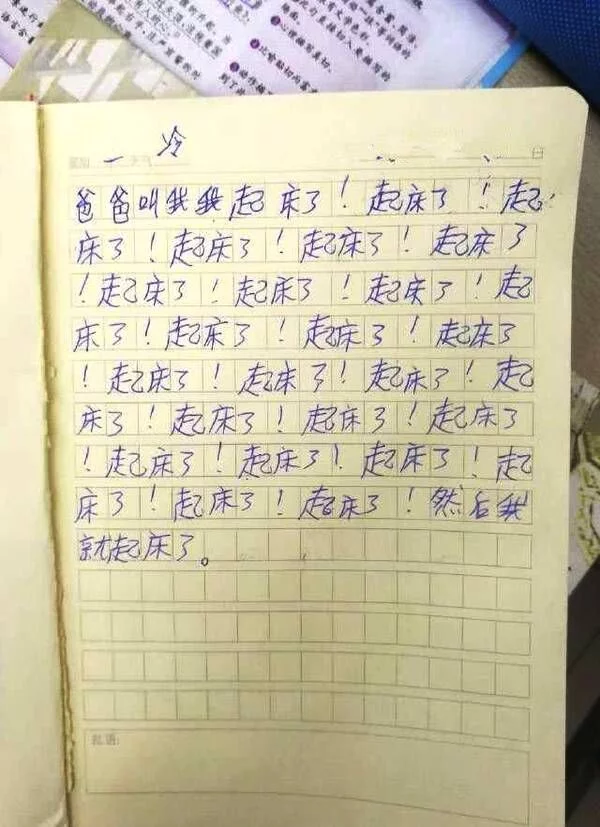 星期 一 天气 冷 日
爸爸叫我我起床了！起床了！起
床了！起床了！起床了！起床了
！起床了！起床了！起床了！起
床了！起床了！起床了！起床了
！起床了！起床了！起床了！起
床了！起床了！起床了！起床了
！起床了！起床了！起床了！起
床了！起床了！起床了！然后我
就起床了。
批语: